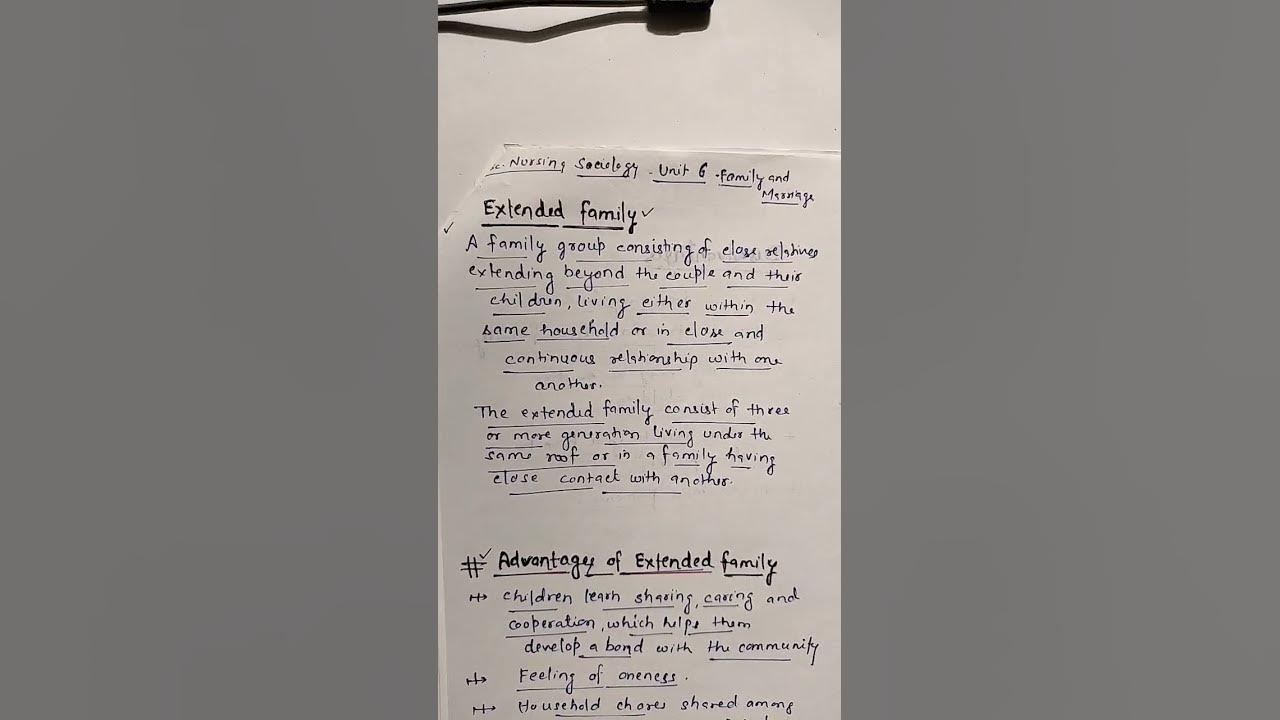 Nursing Sociology. Unit 6. Family and
Marriage
Extended family
A family group consisting of close relatives
extending beyond the couple and their
children, living either within the
same household or in close and
continuous relationship with one
another.
The extended family consist of three
or more generation living under the
same roof or in a family having
close contact with another.
# Advantages of Extended family
children learn sharing, caring and
cooperation, which helps them
develop a bond with the community
Feeling of oneness.
Household chores shared among